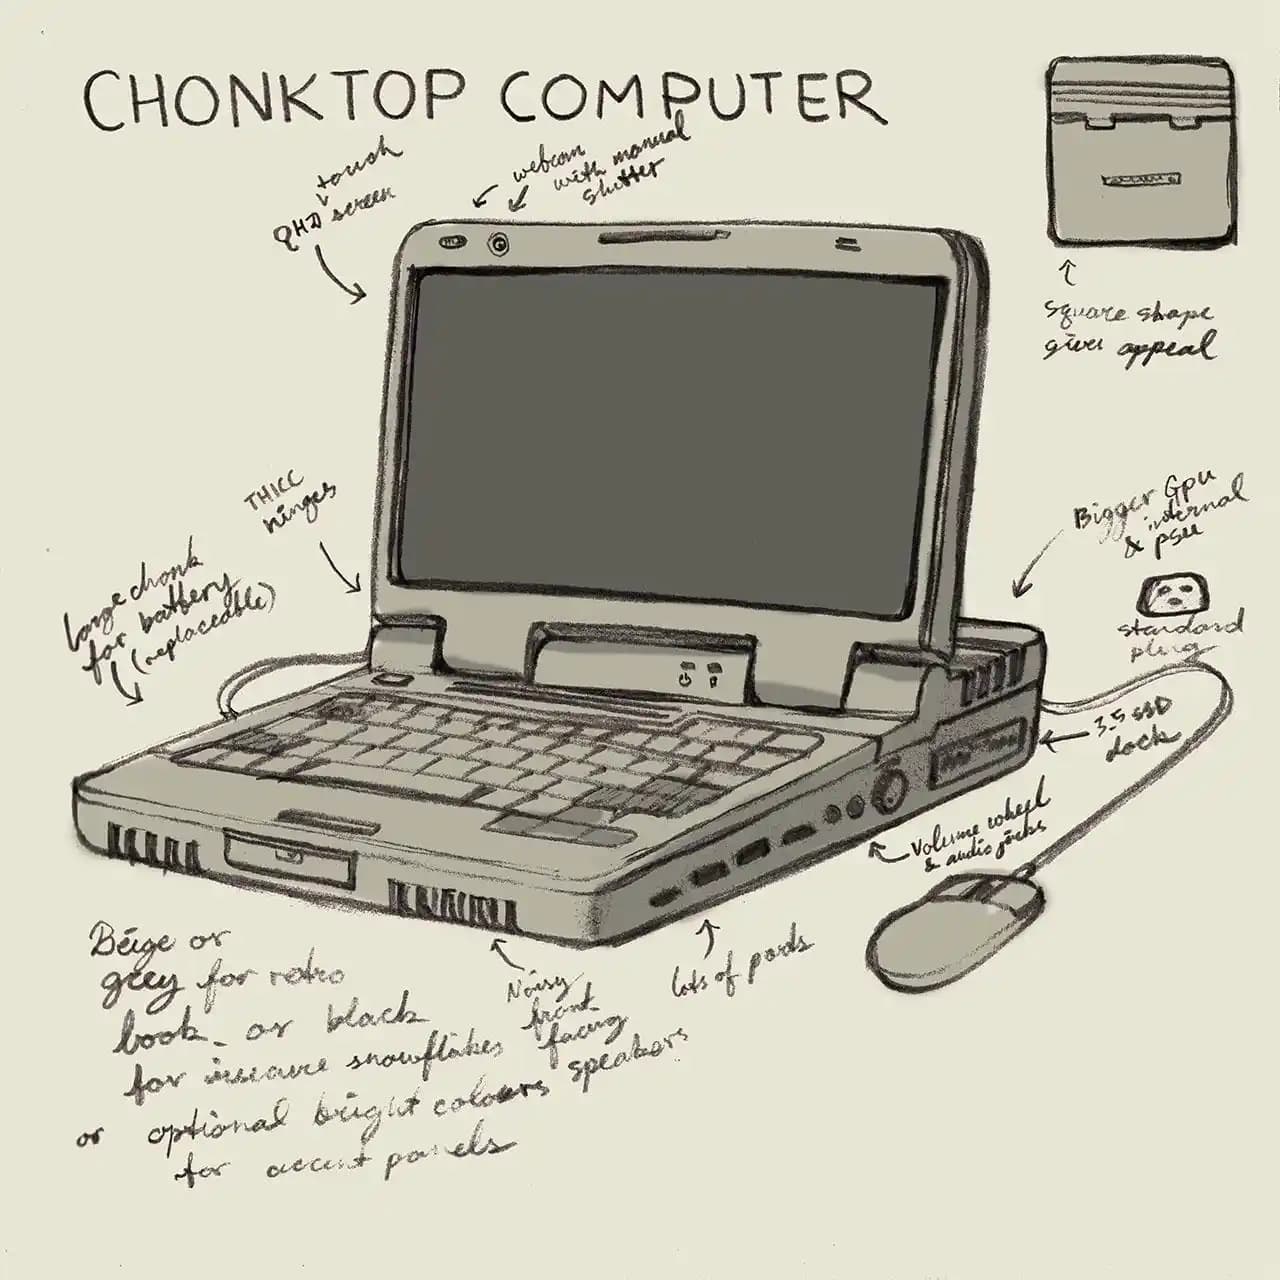 CHONKTOP COMPUTER
touch
QHD screen
webcam
with manual
shutter
square shape
gives appeal
THICC
hinges
Bigger Gpu
& internal
psu
standard
plug
Large chonk
for battery
(replaceable)
3.5 SSD
dock
Volume wheel
& audio jacks
lots of ports
Noisy
front
facing
speakers
Beige or
grey for retro
look or black
for insecure snowflakes
or optional bright colours
for accent panels